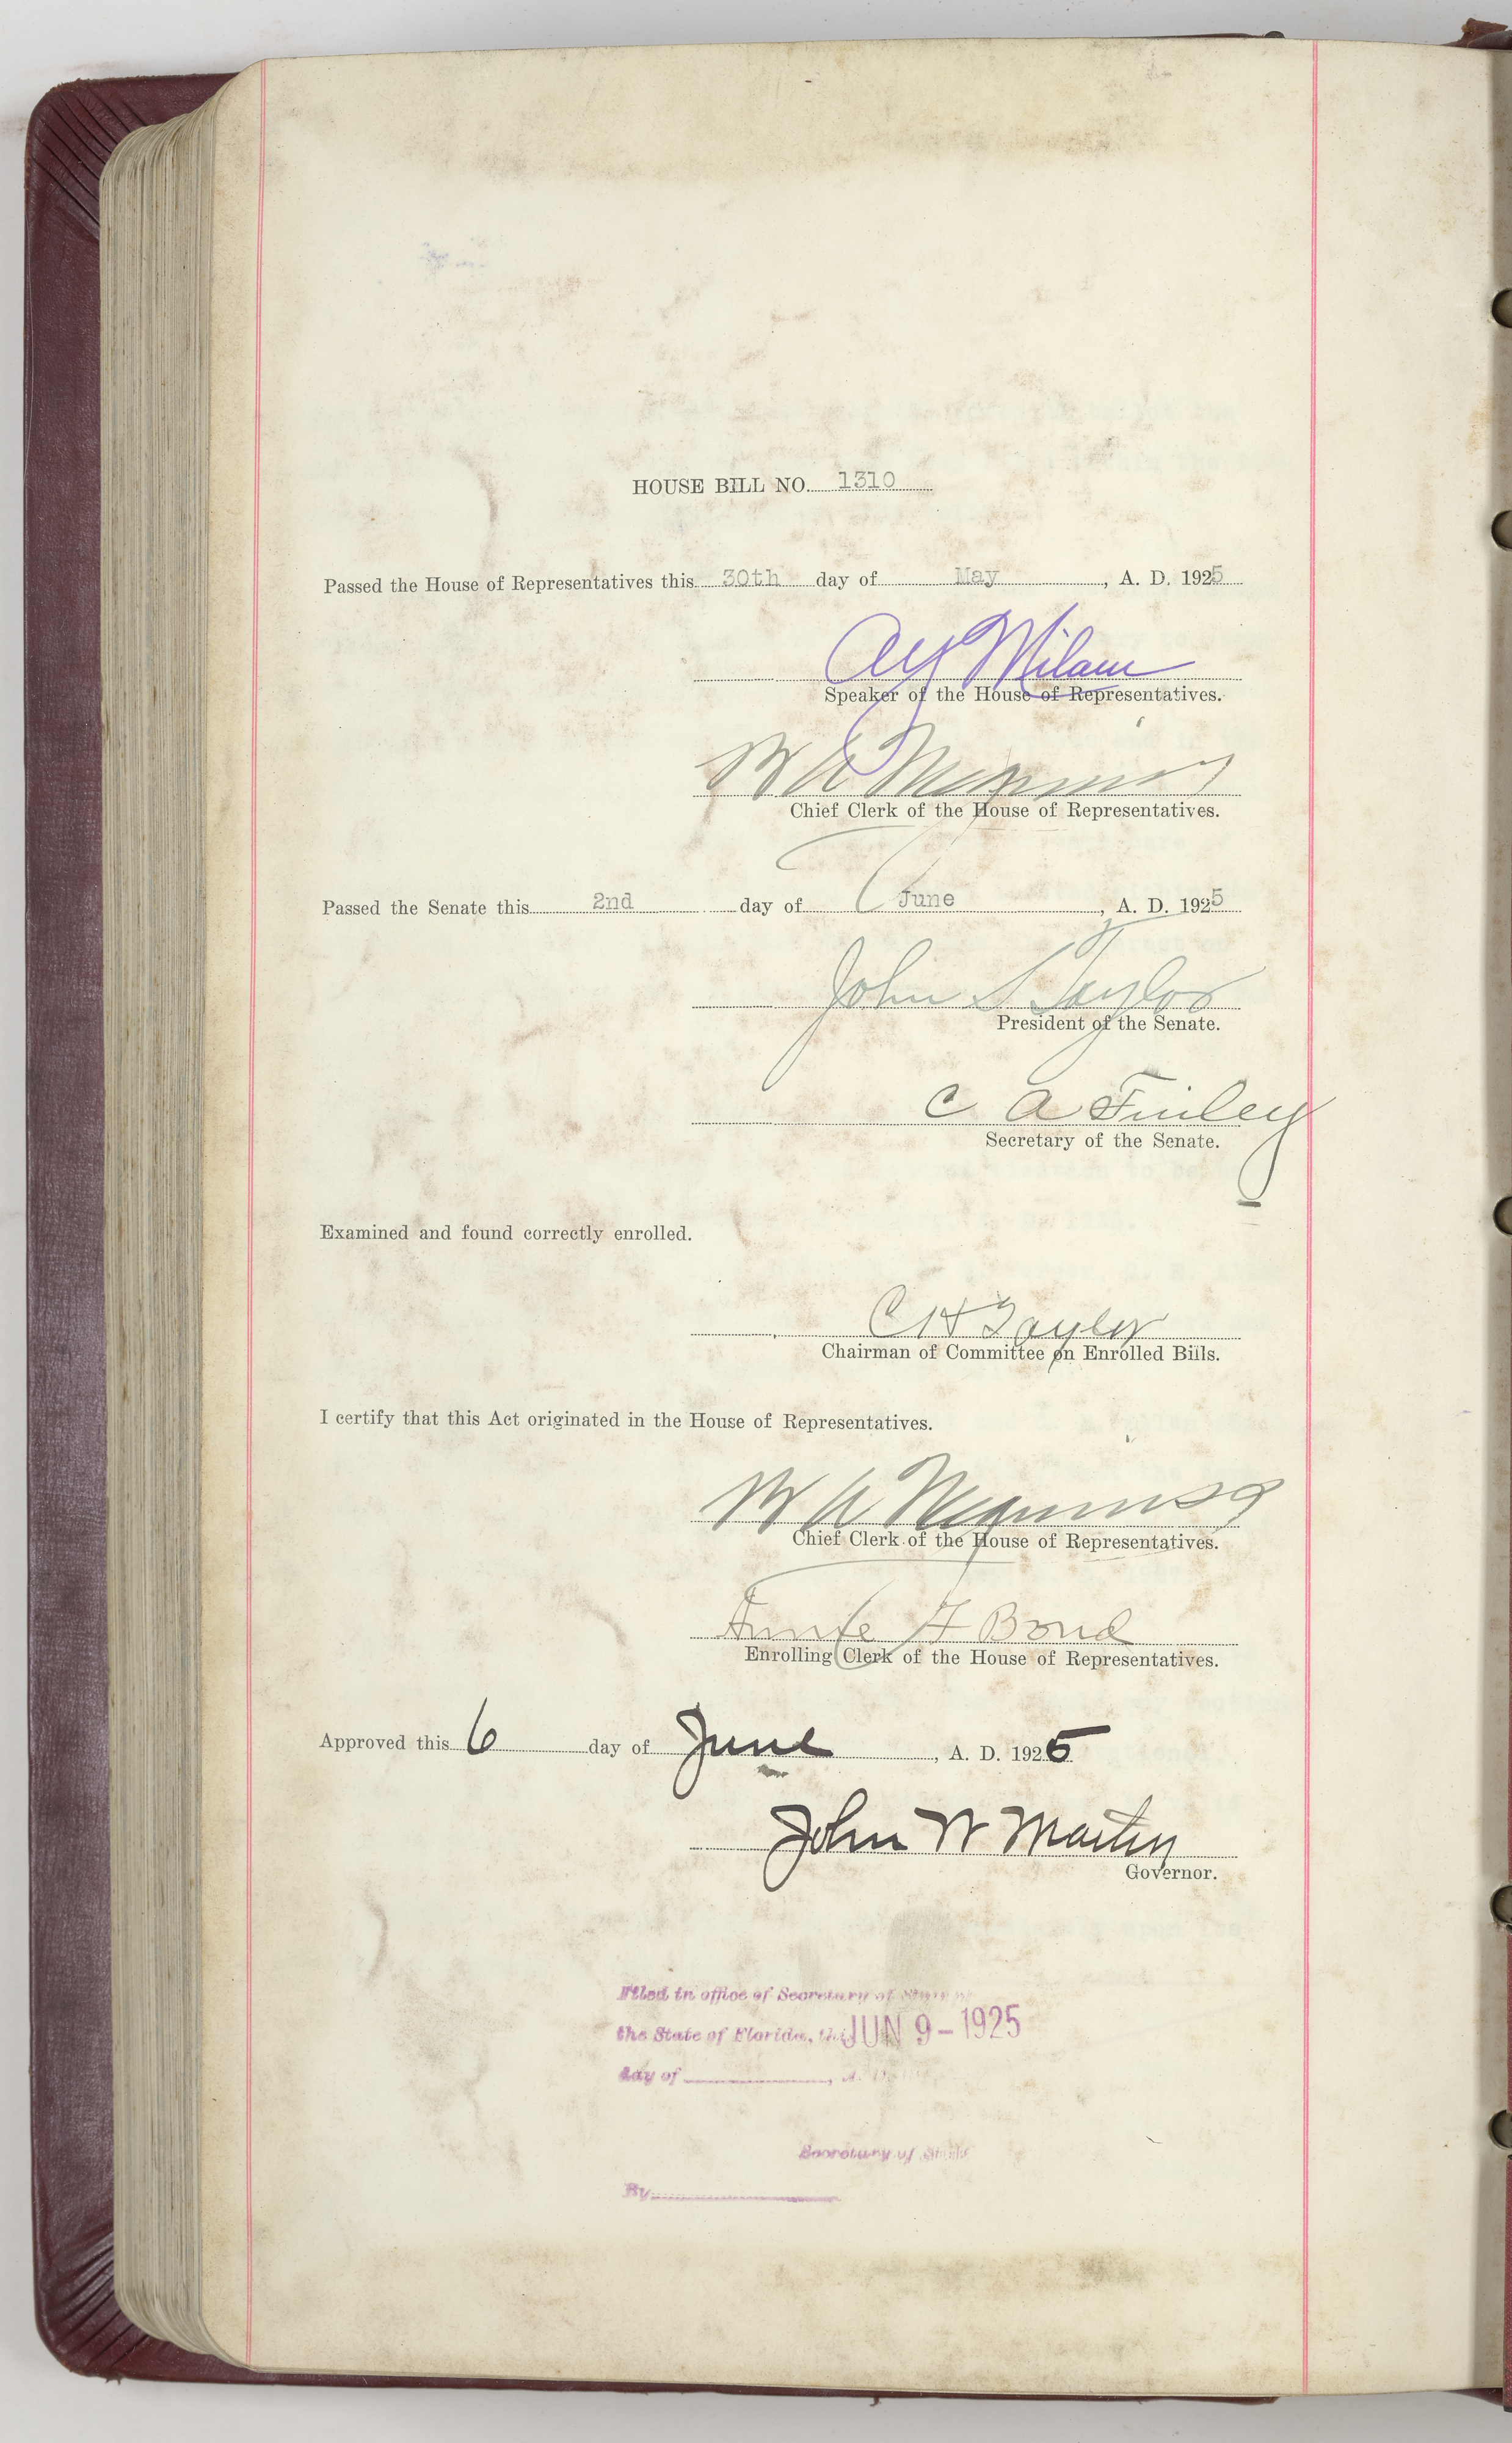 HOUSE BILL NO. 1310
Passed the House of Representatives this 30th day of May, A. D. 1925
A Y Milam
Speaker of the House of Representatives.
Chief Clerk of the House of Representatives.
Passed the Senate this 2nd day of June, A. D. 1925
John S Taylor
President of the Senate.
C A Finley
Secretary of the Senate.
Examined and found correctly enrolled.
C H Taylor
Chairman of Committee on Enrolled Bills.
I certify that this Act originated in the House of Representatives.
Chief Clerk of the House of Representatives.
Bond
Enrolling Clerk of the House of Representatives.
Approved this 6 day of June, A. D. 1925
John W Martin
Governor.
Filed in office of Secretary of State of
the State of Florida, this JUN 9-1925
day of , A. D.
Secretary of State
By